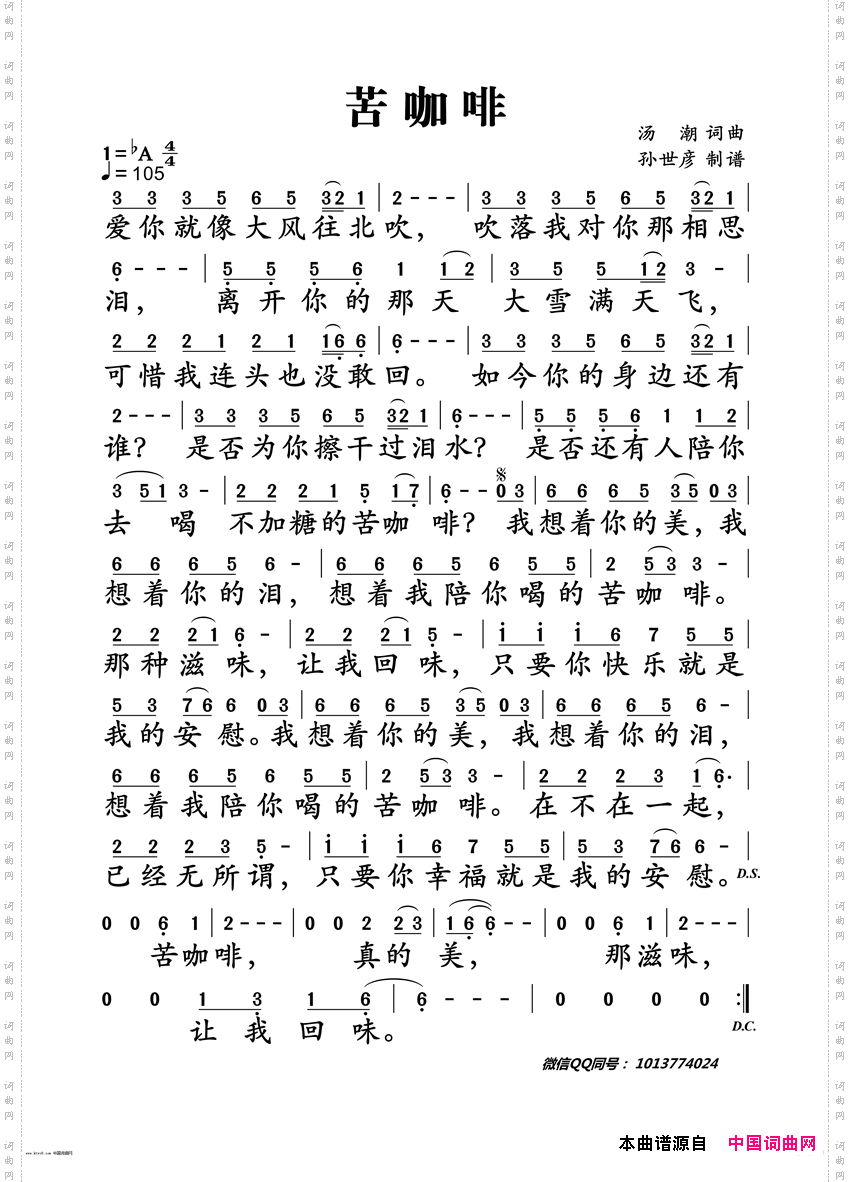 苦咖啡
汤 潮 词曲
1=♭A 4/4
孙世彦 制谱
♩=105
3 3 3 5 6 5 321 | 2 - - - | 3 3 3 5 6 5 321 |
爱你就像大风往北吹， 吹落我对你那相思
6 - - - | 5 5 5 6 1 12 | 3 5 5 12 3 - |
泪， 离开你的那天 大雪满天飞，
2 2 2 1 2 1 166 | 6 - - - | 3 3 3 5 6 5 321 |
可惜我连头也没敢回。 如今你的身边还有
2 - - - | 3 3 3 5 6 5 321 | 6 - - - | 5 5 5 6 1 1 2 |
谁？ 是否为你擦干过泪水？ 是否还有人陪你
3 51 3 - | 2 2 2 1 5 17 | 6 - - 03 | 6 6 6 5 35 03 |
去 喝 不加糖的苦咖 啡？ 我想着你的美，我
6 6 6 5 6 - | 6 6 6 5 6 5 5 | 2 53 3 - |
想着你的泪， 想着我陪你喝的苦咖 啡。
2 2 21 6 - | 2 2 21 5 - | i i i 6 7 5 5 |
那种滋味， 让我回味， 只要你快乐就是
5 3 76 6 03 | 6 6 6 5 35 03 | 6 6 6 5 6 - |
我的安慰。我想着你的美，我想着你的泪，
6 6 6 5 6 5 5 | 2 53 3 - | 2 2 2 3 16· |
想着我陪你喝的苦咖 啡。 在不在一起，
2 2 2 3 5 - | i i i 6 7 5 5 | 5 3 76 6 - |
已经无所谓， 只要你幸福就是我的安慰。 D.S.
0 0 6 1 | 2 - - - | 0 0 2 23 | 16 6 - - | 0 0 6 1 | 2 - - - |
苦咖啡， 真的 美， 那滋味，
0 0 1 3 1 6 | 6 - - - | 0 0 0 0 :|
让我回味。 D.C.
微信QQ同号：1013774024
本曲谱源自 中国词曲网
词曲网